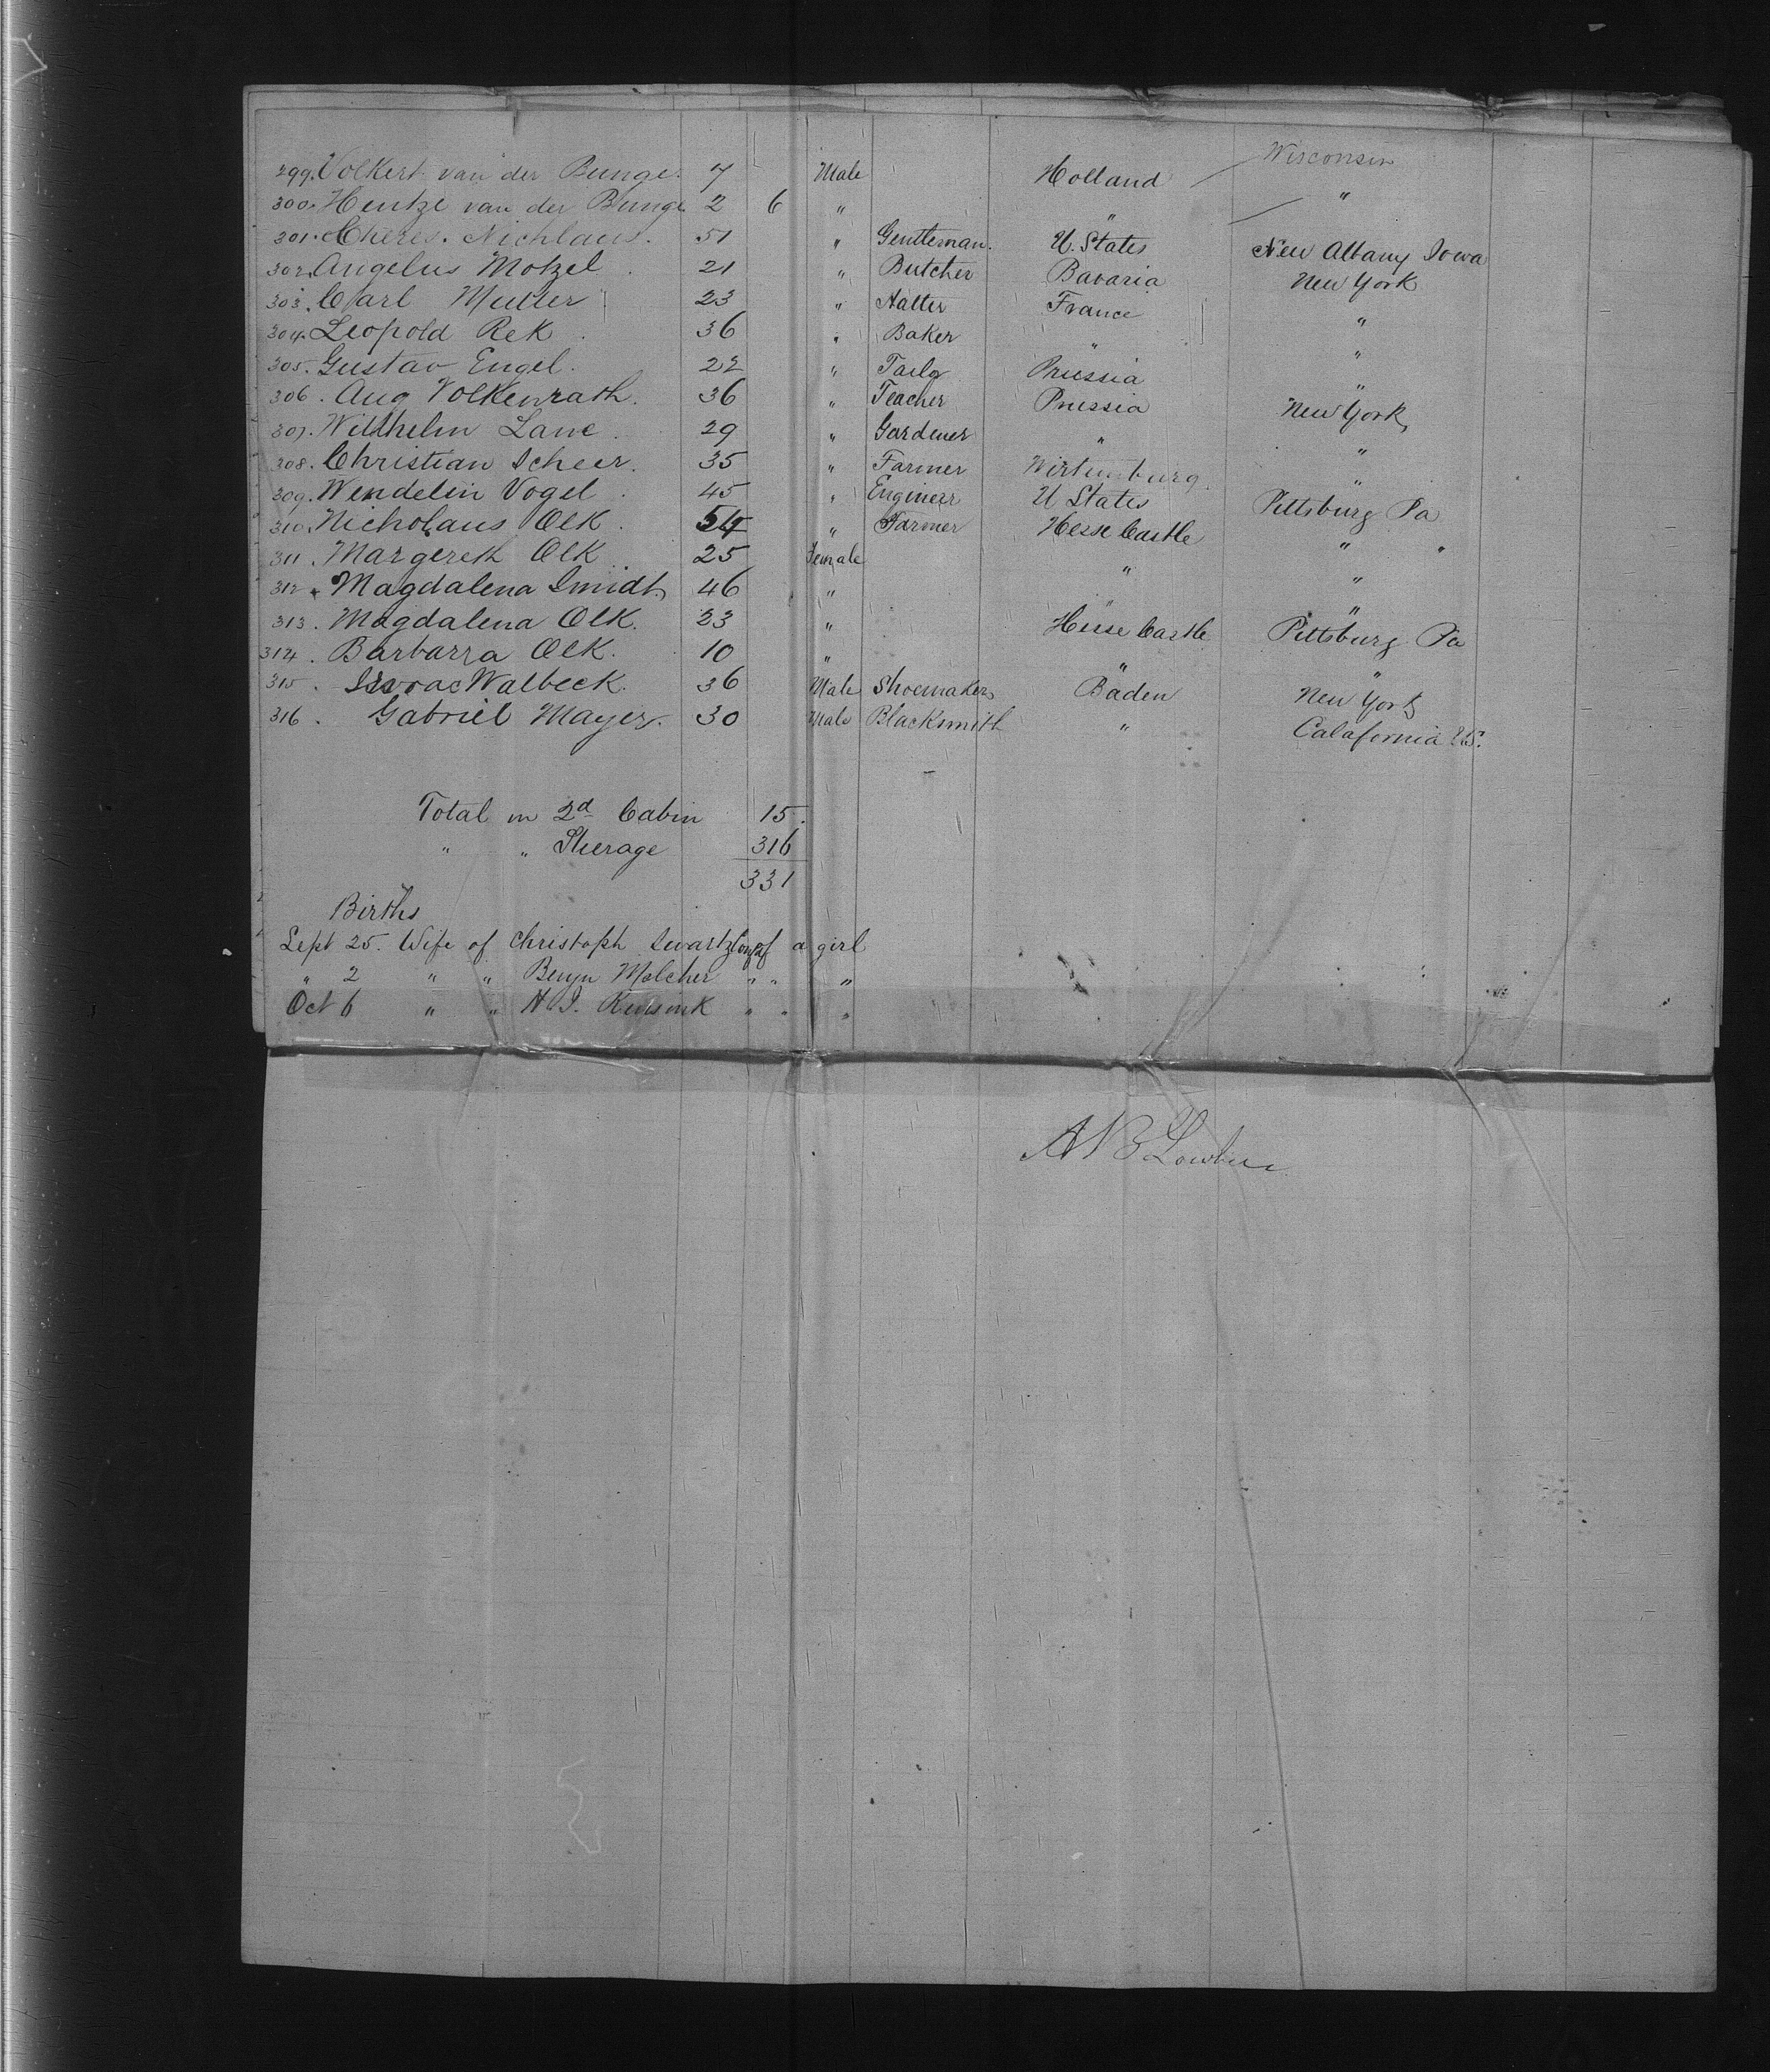 299. Volkert van der Bunge. 7 Male Holland Wisconsin
300. Hentze van der Bunge 2 6 " " "
301. Cheres. Nichlaus. 51 " Gentleman. U. States New Albany Iowa
302. Angelus Motzel. 21 " Butcher Bavaria New York
303. Carl Muller 23 " Hatter France "
304. Leopold Rek. 36 " Baker " "
305. Gustav Engel. 22 " Tailo Prussia "
306. Aug Volkenrath. 36 " Teacher Prussia New York
307. Willhelm Lane. 29 " Gardener " "
308. Christian Scheer. 35 " Farmer Wirtemburg. "
309. Wendelin Vogel. 45 " Engineer U States Pittsburg Pa
310. Nicholaus Olk. 54 " Farmer Hesse Castle " "
311. Margereth Olk 25 Female " "
312. Magdalena Smidt 46 " " "
313. Magdalena Olk. 23 " Hesse Castle Pittsburg Pa
314. Barbarra Olk. 10 " " "
315. Walbeck. 36 Male Shoemaker Baden New York
316. Gabriel Mayer. 30 Male Blacksmith " Calafornia U.S.
Total in 2d Cabin 15.
" " Sterage 316
331
Births
Sept 25. Wife of Christoph of a girl
" 2 " " Melcher " " "
Oct 6 " " " " "
A B